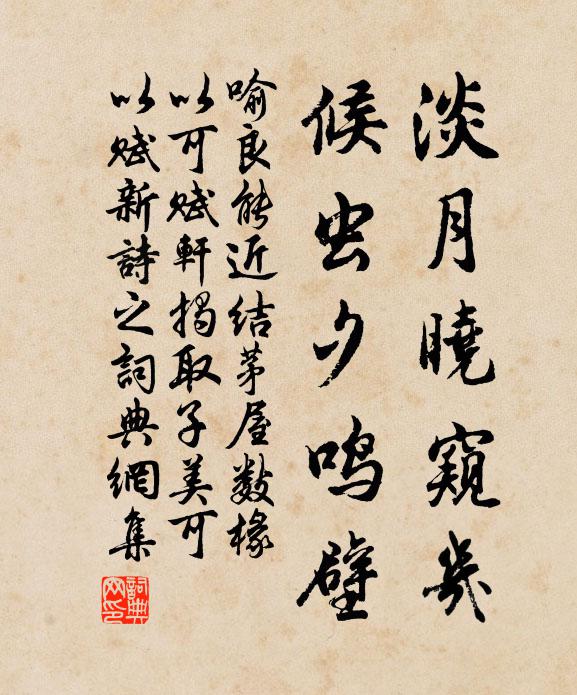 淡月曉窺幾
候虫夕鳴壁
喻良能近结茅屋數椽
以可赋軒揭取子美可
以赋新詩之詞典網集
詞典網印